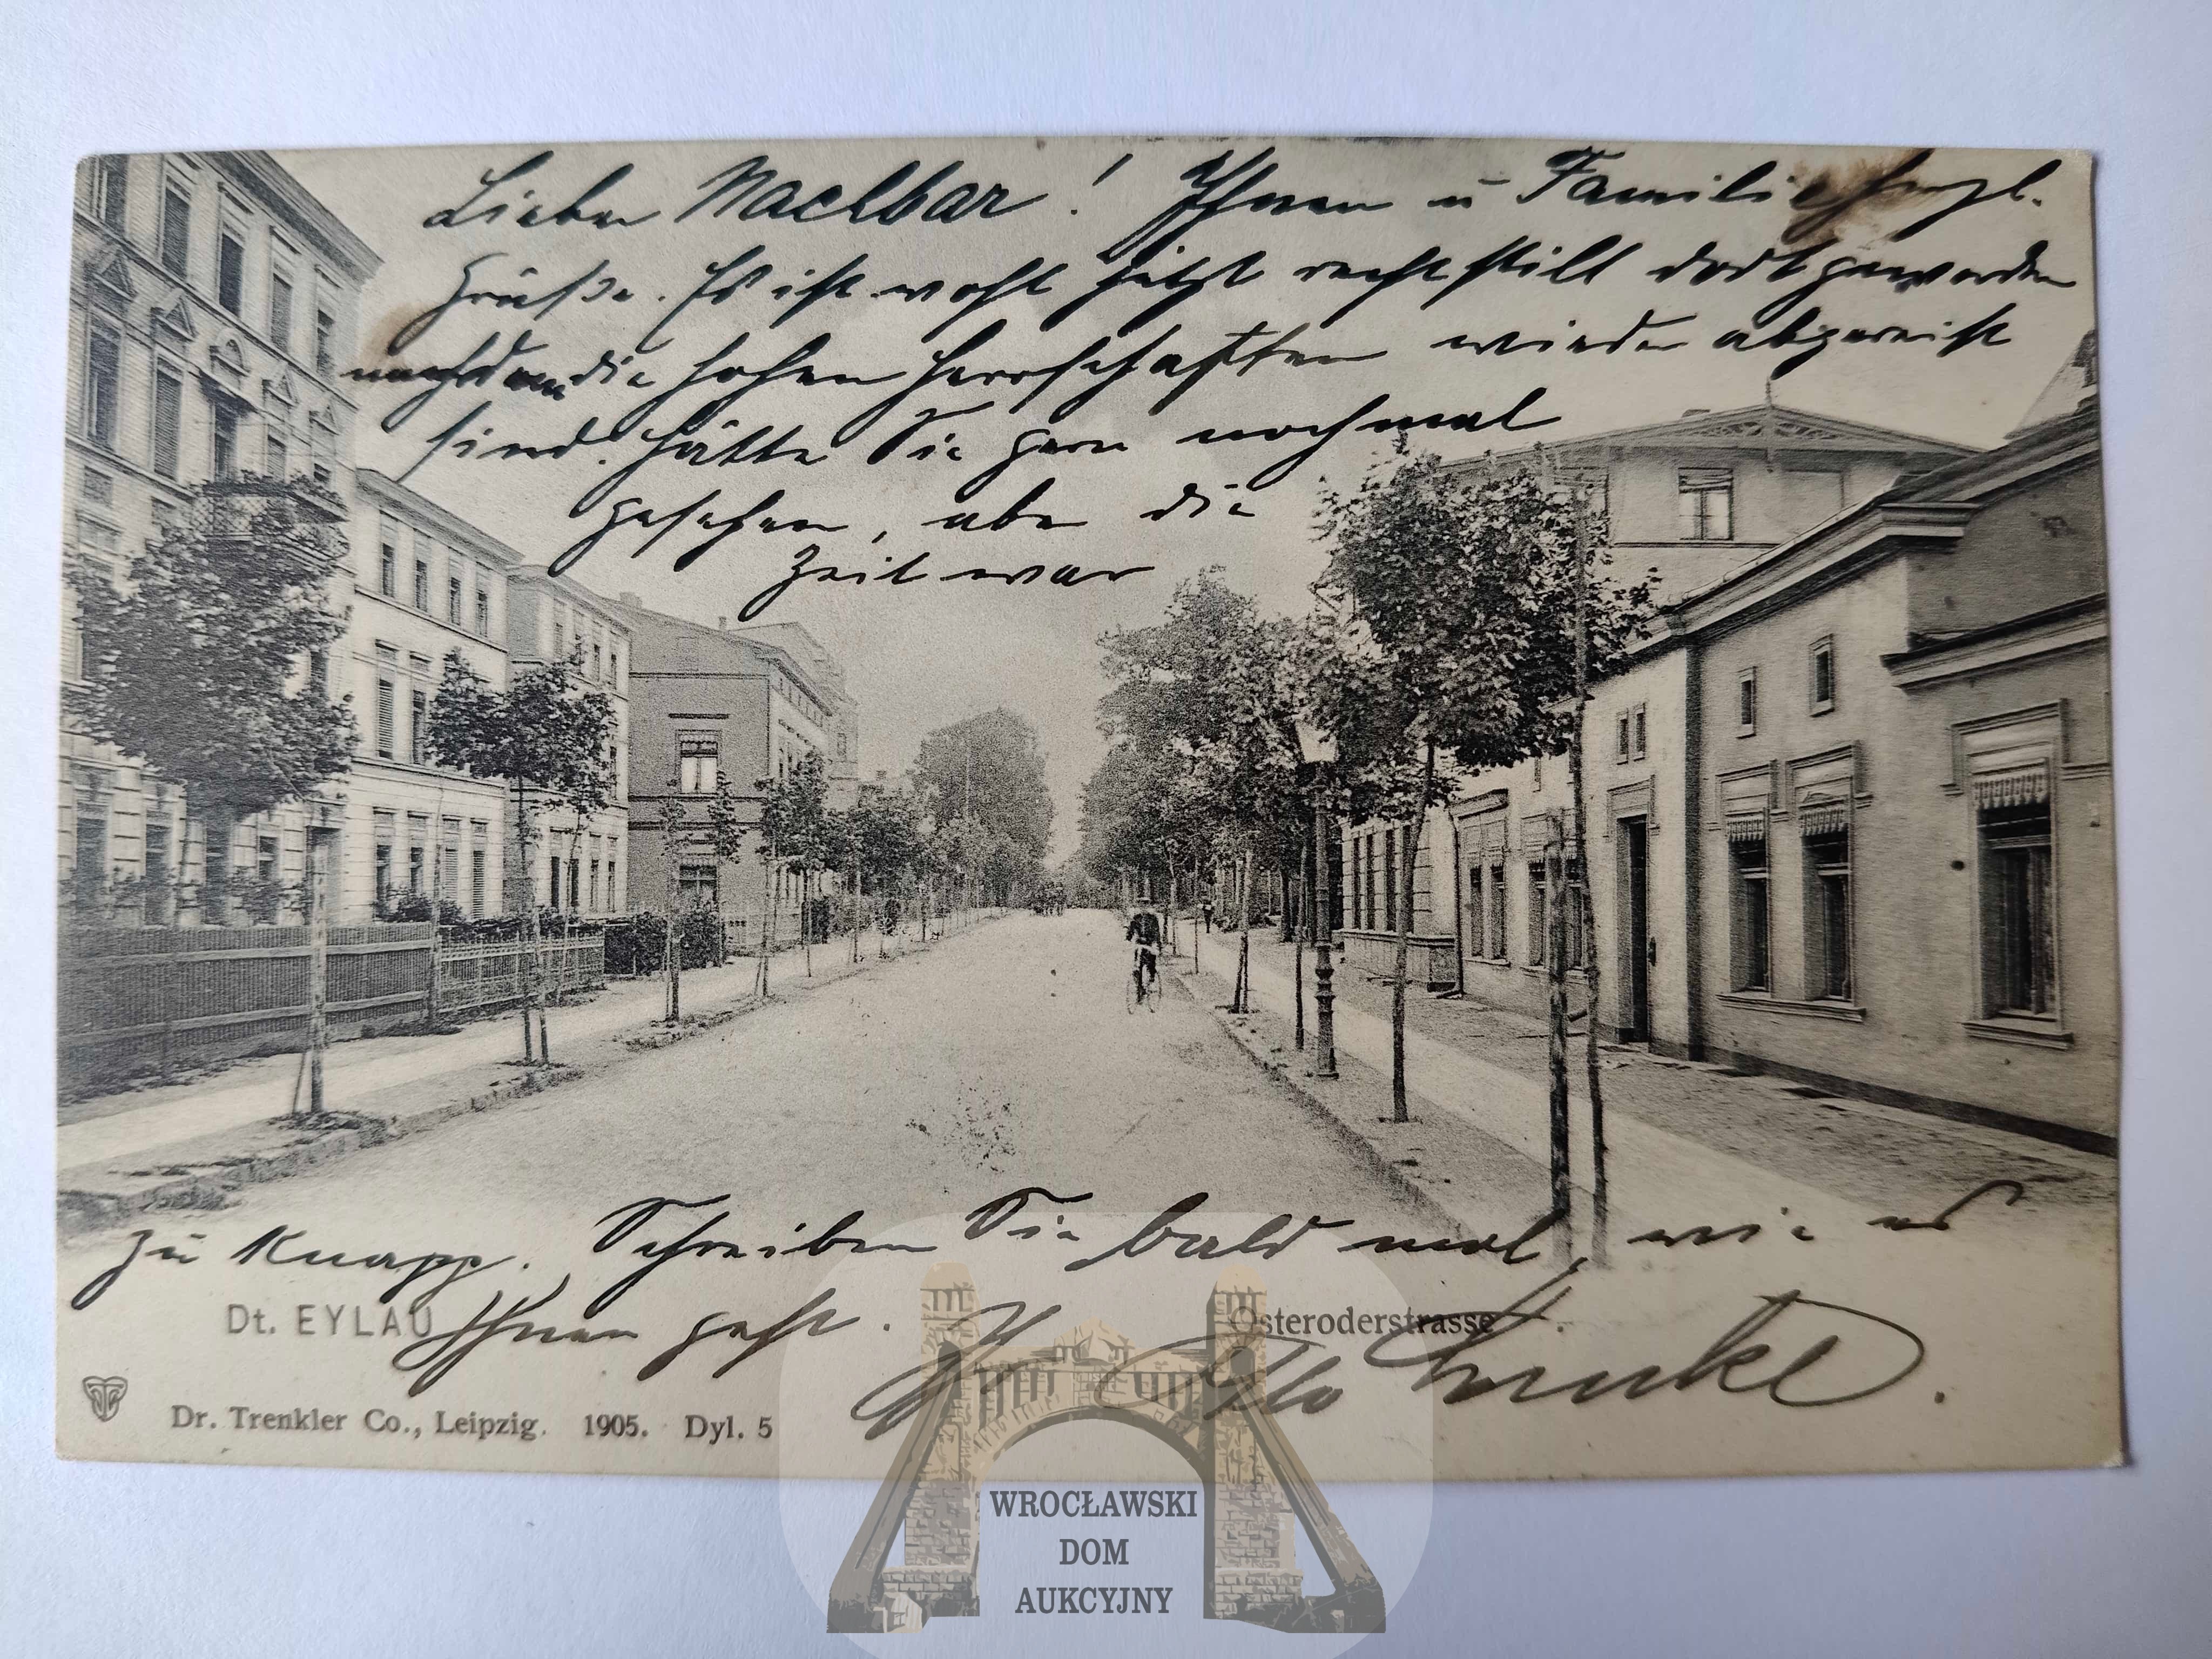 Lieber Nachbar! Ihnen u Familie herzl.
Grüße. Es ist wohl jetzt recht still dort geworden
nachdem die hohen Herrschaften wieder abgereist
sind. Hätte Sie gern nochmal
gesehen, aber die
Zeit war
zu knapp. Schreiben Sie bald mal, wie es
Ihnen geht.
Dt. EYLAU
Osteroderstrasse
Dr. Trenkler Co., Leipzig. 1905. Dyl. 5
WROCŁAWSKI
DOM
AUKCYJNY